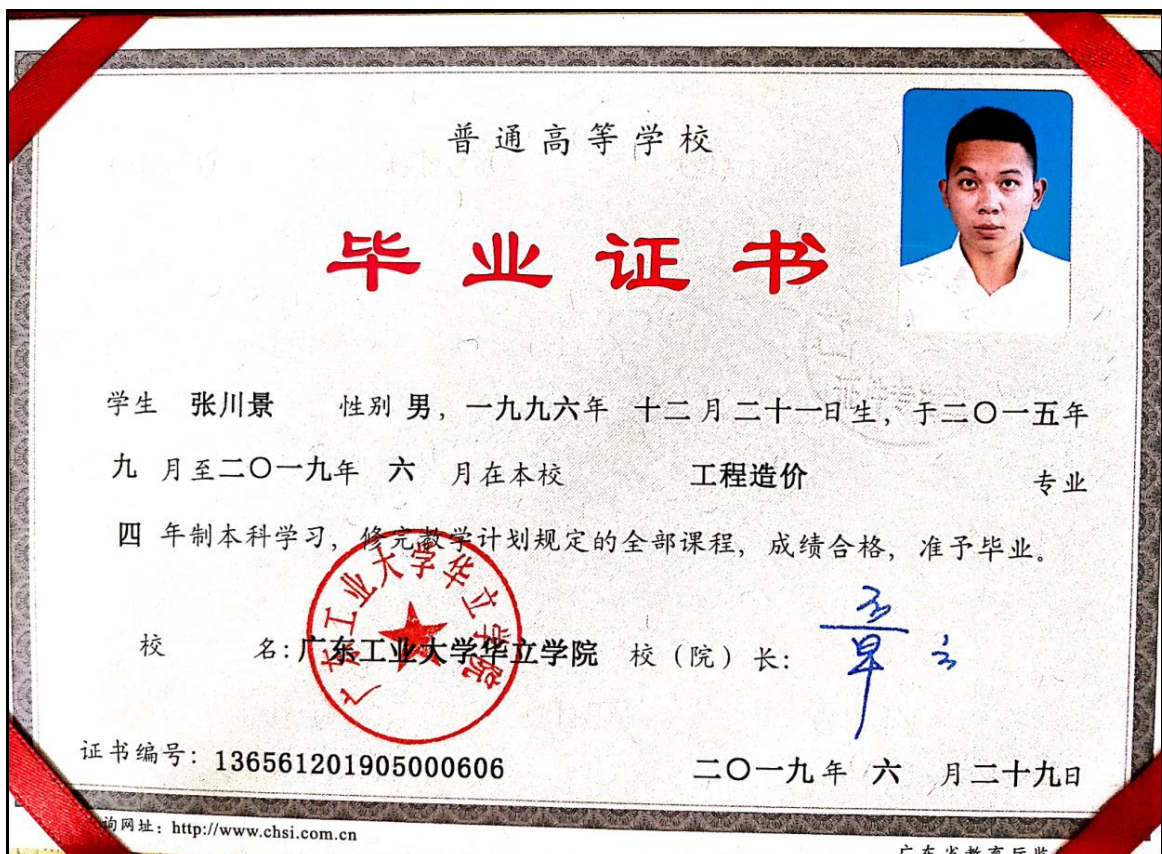 普通高等学校
毕业证书
学生 张川景 性别 男，一九九六年 十二月二十一日生，于二〇一五年
九 月至二〇一九年 六 月在本校 工程造价 专业
四 年制本科学习，修完教学计划规定的全部课程，成绩合格，准予毕业。
校 名：广东工业大学华立学院 校（院）长：
广东工业大学华立学院
证书编号：136561201905000606 二〇一九年 六 月二十九日
询网址：http://www.chsi.com.cn
广东省教育厅监